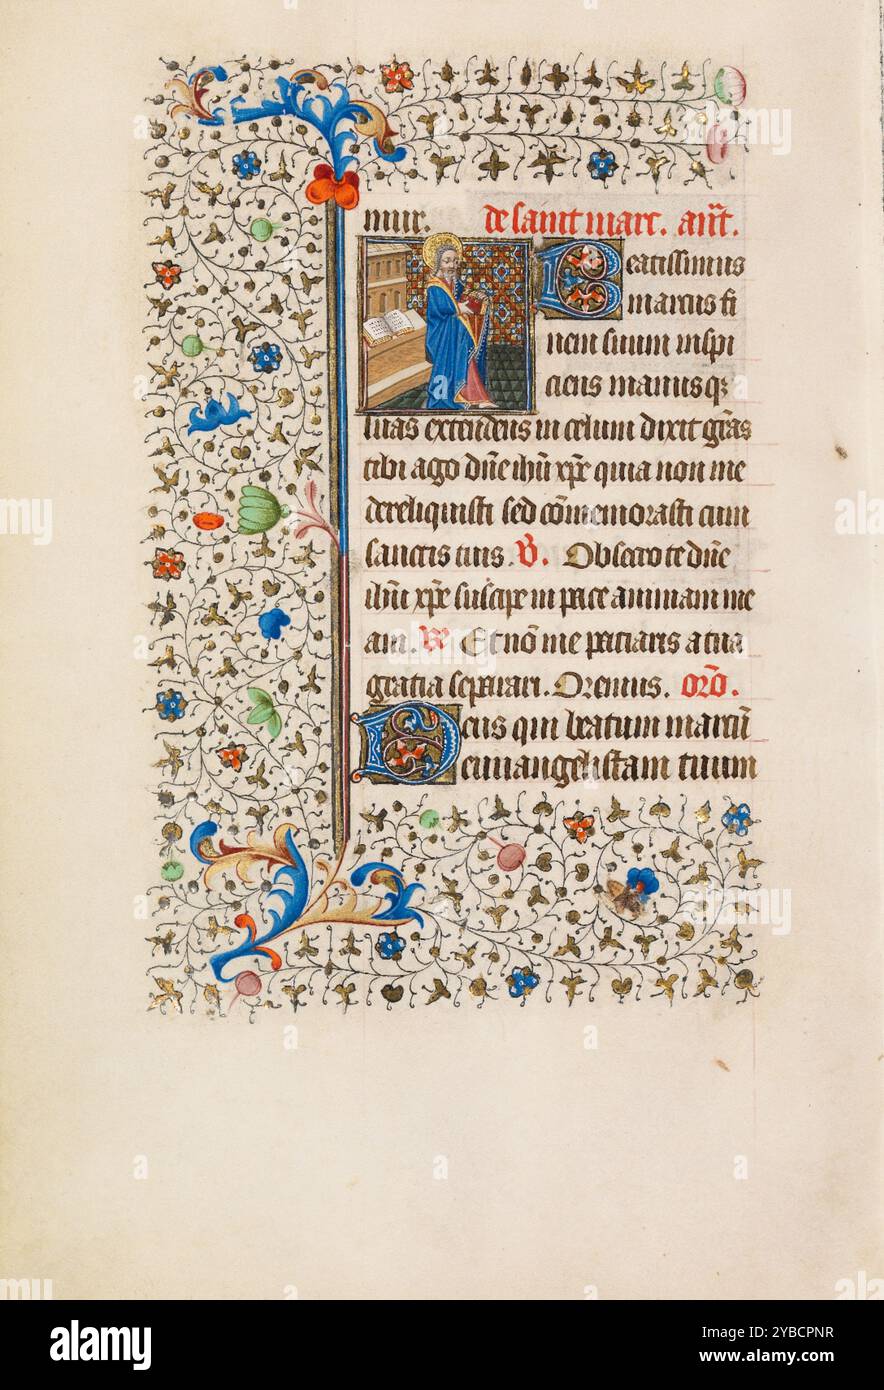 mur. de saint marc. ant̃.
Beatissimus
marcus fi
nem suum inspi
ciens manusq3
suas extendens in celum dixit gr̃as
tibi ago dñe ihũ xp̃e quia non me
dereliquisti sed cõmemorasti cum
sanctis tuis. V̉. Obsecro te dñe
ihũ xp̃e suscipe in pace animam me
am. R̉ Et nõ me patiaris a tua
gratia separari. Oremus. orõ.
Deus qui beatum marcũ
euuangelistam tuum
alamy
alamy
Image ID: 2YBCPNR
www.alamy.com